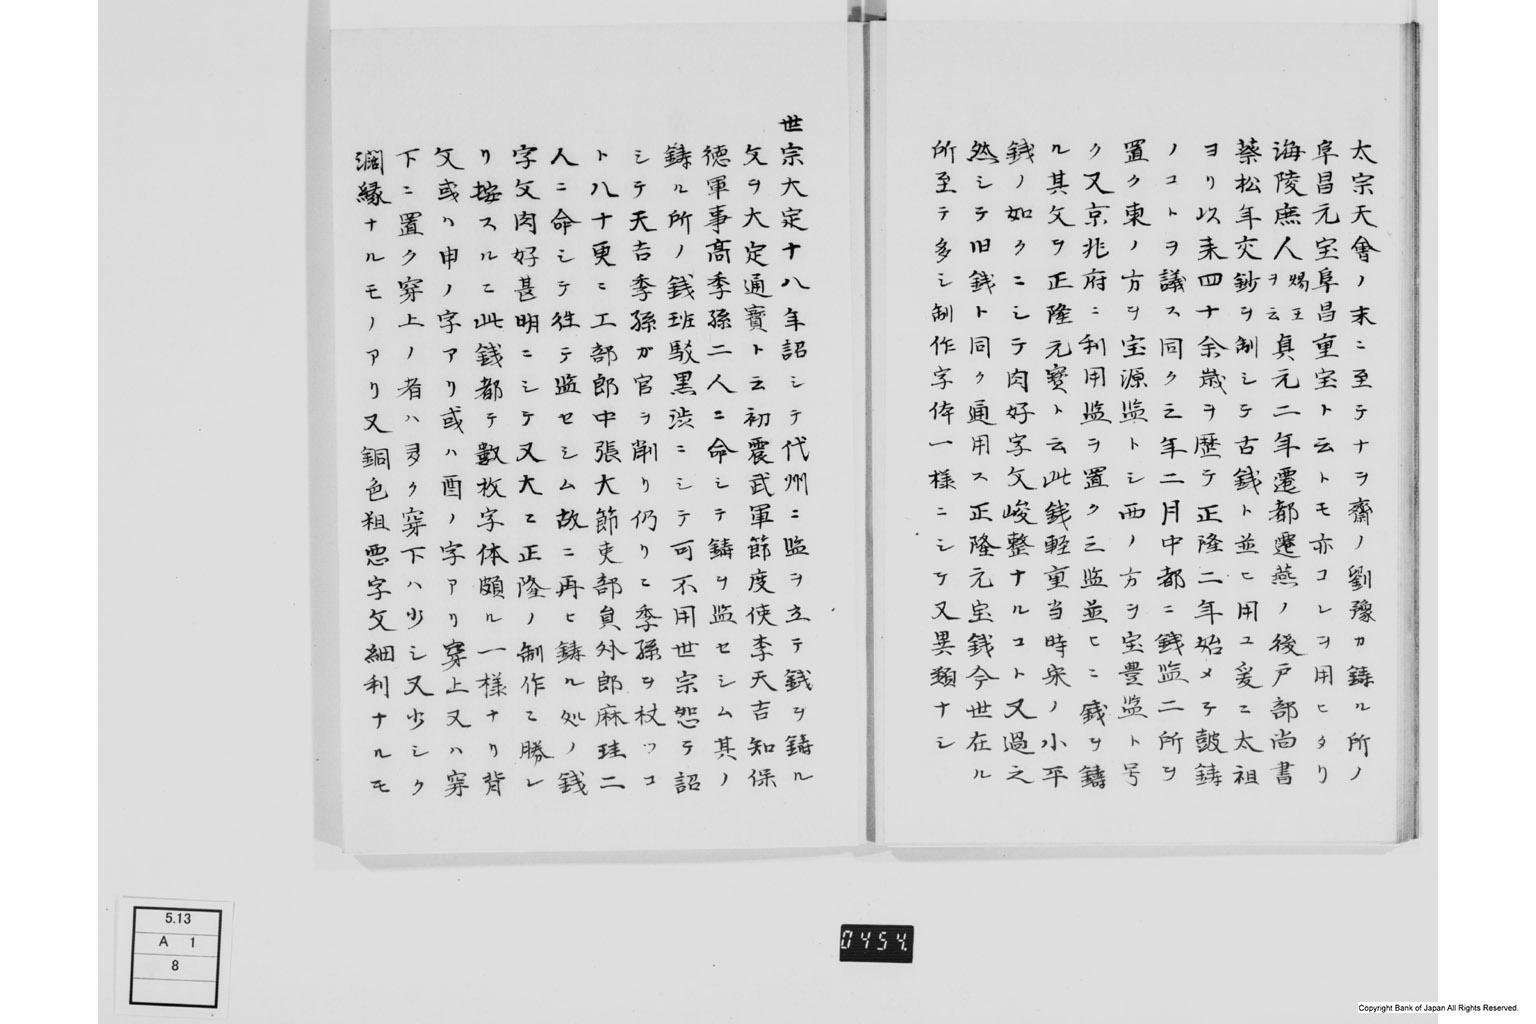 太宗天會ノ末ニ至テナヲ齋ノ劉豫カ鋳ル所ノ
阜昌元宝阜昌重宝ト云トモ亦コレヲ用ヒタリ
海陵庶人ヲ煬王ト云真元二年遷都遷燕ノ後戸部尚書
蔡松年交鈔ヲ制シテ古銭ト並ヒ用ユ爰ニ太祖
ヨリ以来四十余歳ヲ歴テ正隆二年始メテ鼓鋳
ノコトヲ議ス同ク三年二月中都ニ銭監二所ヲ
置ク東ノ方ヲ宝源監トシ西ノ方ヲ宝豊監ト号
ク又京兆府ニ利用監ヲ置ク三監並ヒニ銭ヲ鑄
ル其文ヲ正隆元寳ト云此銭軽重当時宋ノ小平
銭ノ如クニシテ肉好字文峻整ナルコト又過之
然シテ旧銭ト同ク通用ス正隆元宝銭今世在ル
所至テ多シ制作字体一様ニシテ又異類ナシ
世宗大定十八年詔シテ代州ニ監ヲ立テ銭ヲ鑄ル
文ヲ大定通寳ト云初震武軍節度使李天吉知保
徳軍事高季孫二人ニ命シテ鑄ヲ監セシム其ノ
鋳ル所ノ銭班駁黒渋ニシテ可不用世宗怒テ詔
シテ天吉季孫ガ官ヲ削リ仍リニ季孫ヲ杖ツコ
ト八十更ニ工部郎中張大節吏部員外郎麻珪二
人ニ命シテ往テ監セシム故ニ再ヒ鋳ル処ノ銭
字文肉好甚明ニシテ又大ニ正隆ノ制作ニ勝レ
リ按スルニ此銭都テ數枚字体頗ル一様ナリ背
文或ハ申ノ字アリ或ハ酉ノ字アリ穿上又ハ穿
下ニ置ク穿上ノ者ハ多ク穿下ハ少シ又少シク
濶縁ナルモノアリ又銅色粗悪字文細利ナルモ
5.13
A 1
8
0454
Copyright Bank of Japan All Rights Reserved.